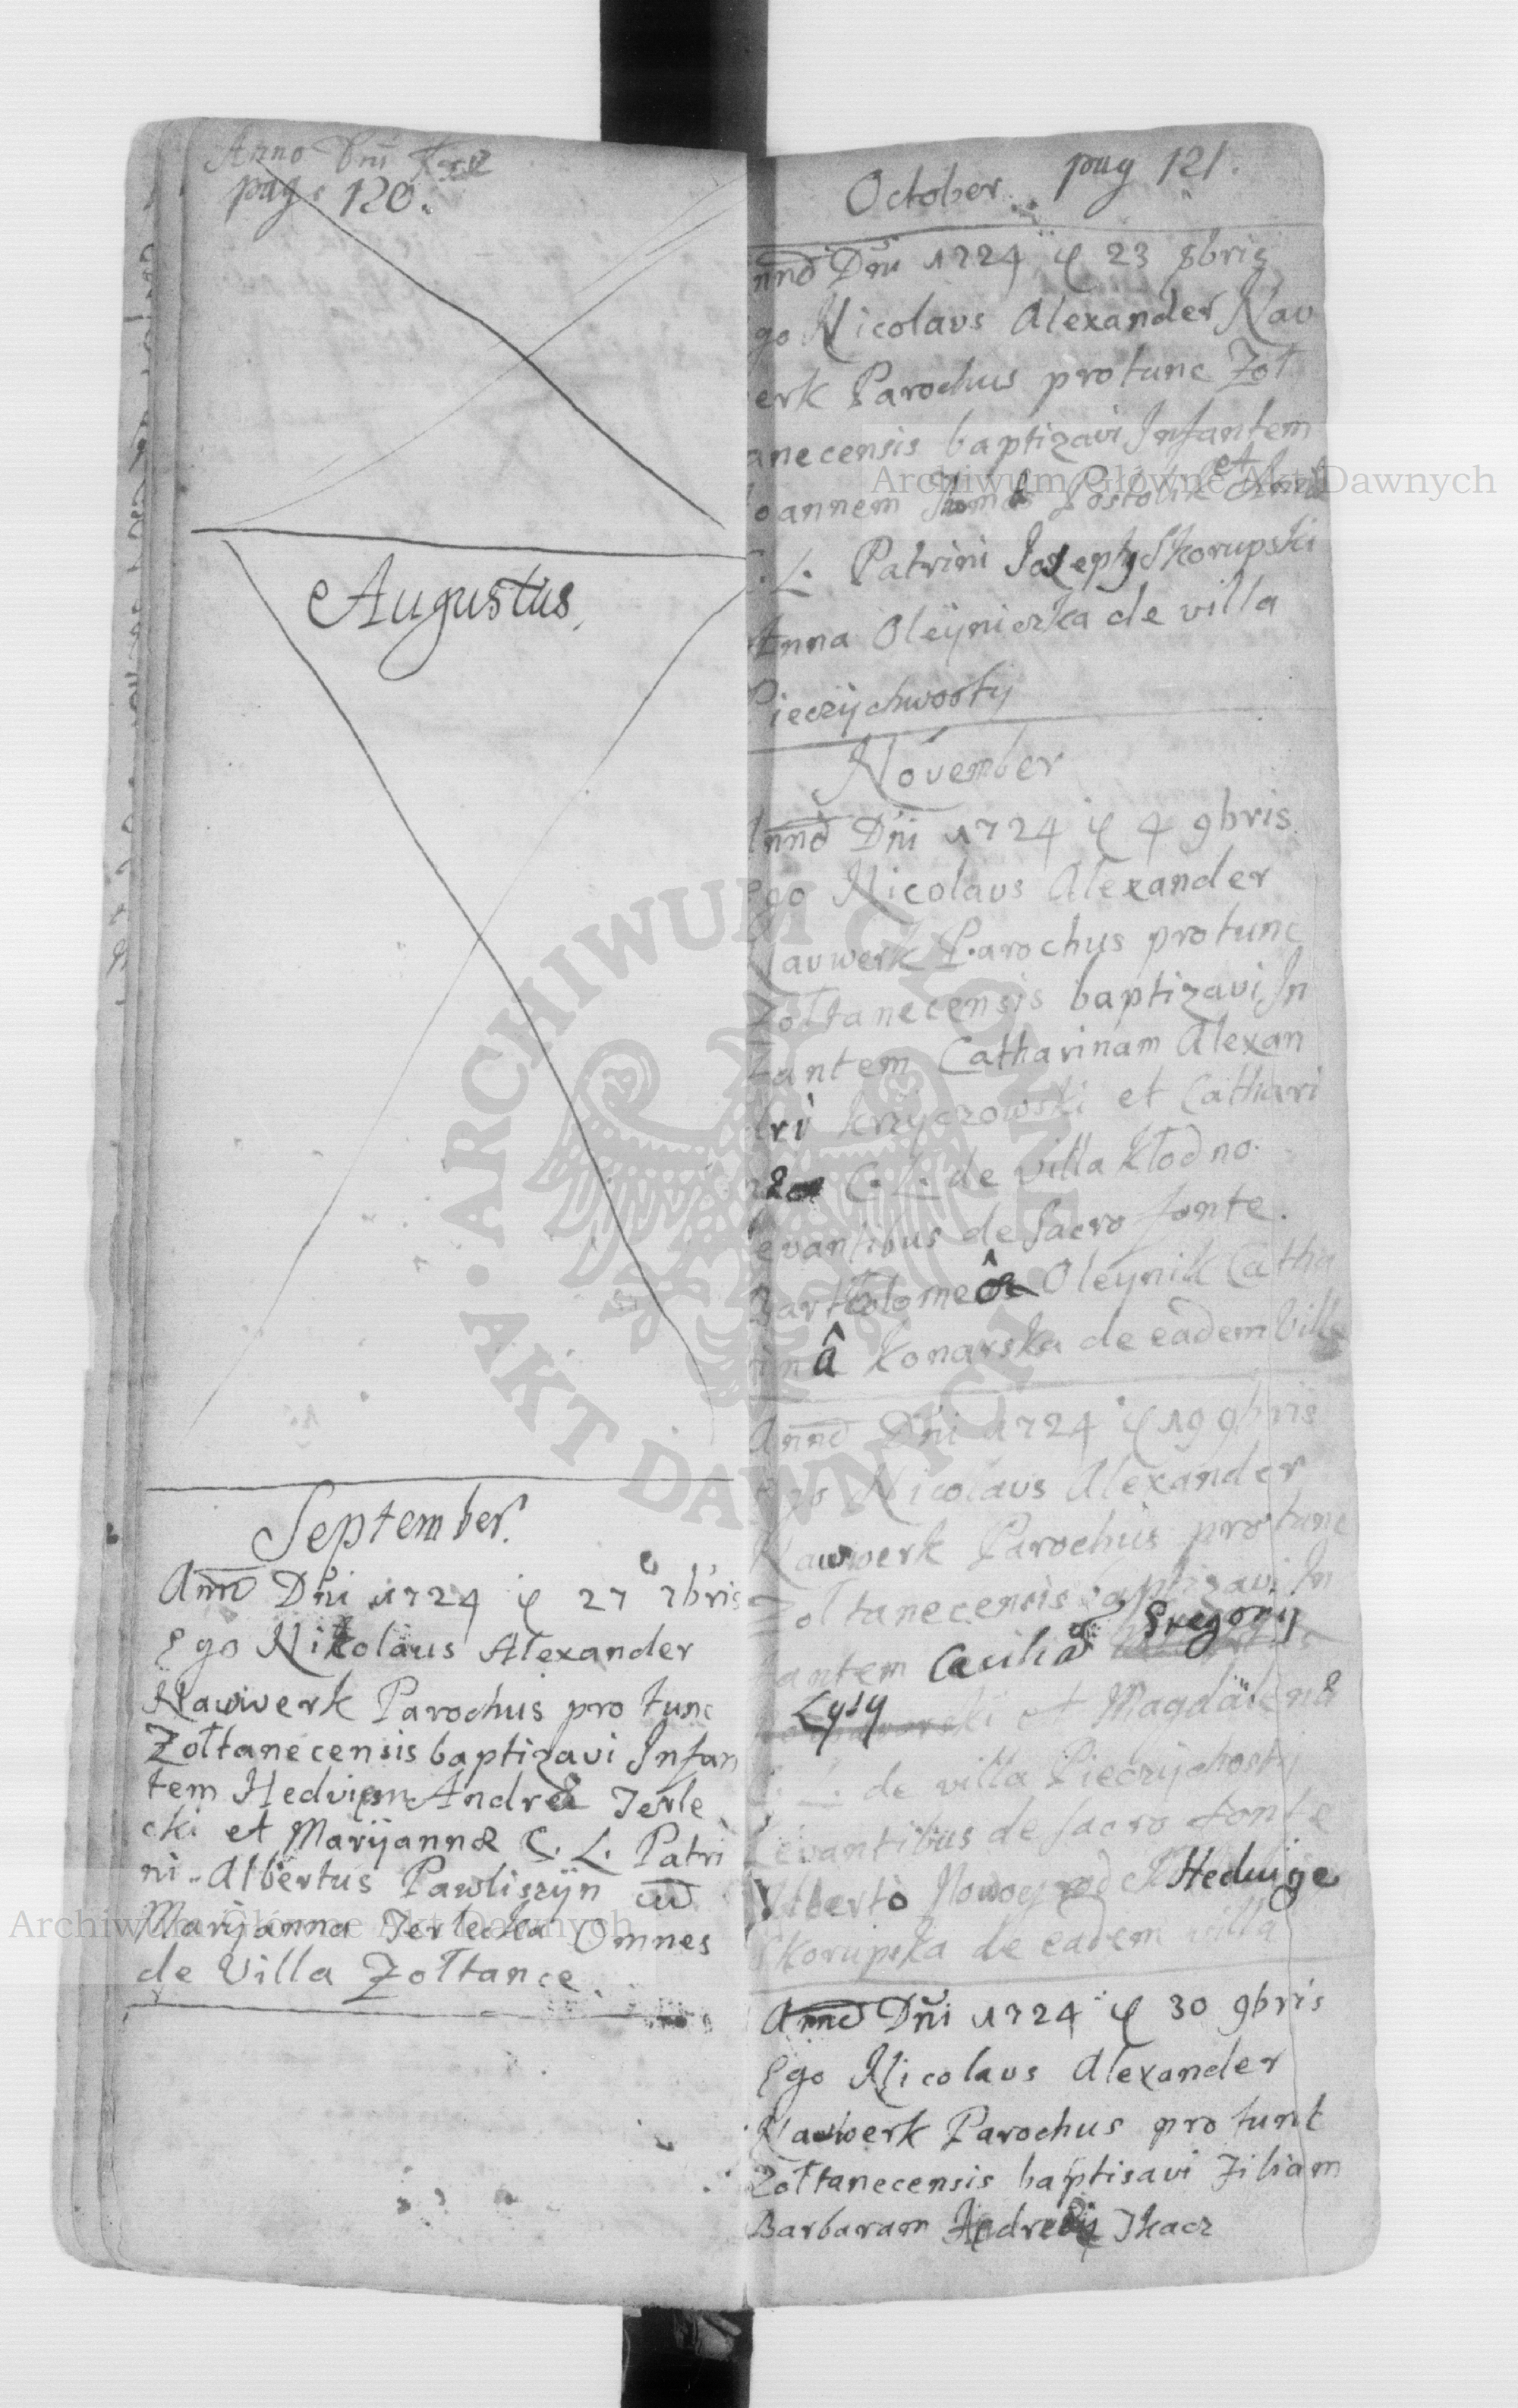 Anno Dni
pag. 120.
Augustus.
September.
Anno Dni 1724 ÿ 27 7bris
Ego Nikolaus Alexander
Nawwerk Parochus pro tunc
Zołtanecensis baptizavi Infan
tem Hedvigem Andreæ Terle
cki et Maryannæ C. L. Patri
ni Albertus Pawliszÿn cu
Marÿanna Terlecka Omnes
de Villa Zołtance.
October pag 121.
nno Dni 1724 ÿ 23 8bris
go Nicolaus Alexander Nav
erk Parochus pro tunc Zoł
anecensis baptizavi Infantem
oannem Postolik et
C. L. Patrini Joseph Skorupski
Anna Oleÿniczka de villa
Pieczÿchwosty
November
Anno Dni 1724 ÿ 4 9bris
Ego Nicolaus Alexander
Navwerk Parochus pro tunc
Zołtanecensis baptizavi In
fantem Catharinam Alexan
dri Krzyczowski et Cathari
næ C. L. de villa Kłodno.
Levantibus de Sacro fonte.
Bartholomeo Oleÿnik Catha
rinâ Konarska de eadem Villa
Anno Dni 1724 ÿ 19 9bris
Ego Nicolaus Alexander
Nawwerk Parochus pro tunc
Zołtanecensis baptizavi In
fantem Cæcilia Gregorij
Lysy et Magdalenæ
C. L. de villa Pieczychosty
Levantibus de sacro fonte
Alberto Hedwige
Skorupska de eadem villa
Anno Dni 1724 ÿ 30 9bris
Ego Nicolaus Alexander
Nawwerk Parochus pro tunt
Zołtanecensis baptisavi Filiam
Barbaram Tkacz
Archiwum Główne Akt Dawnych
Archiwum Główne Akt Dawnych
ARCHIWUM GŁÓWNE AKT DAWNYCH